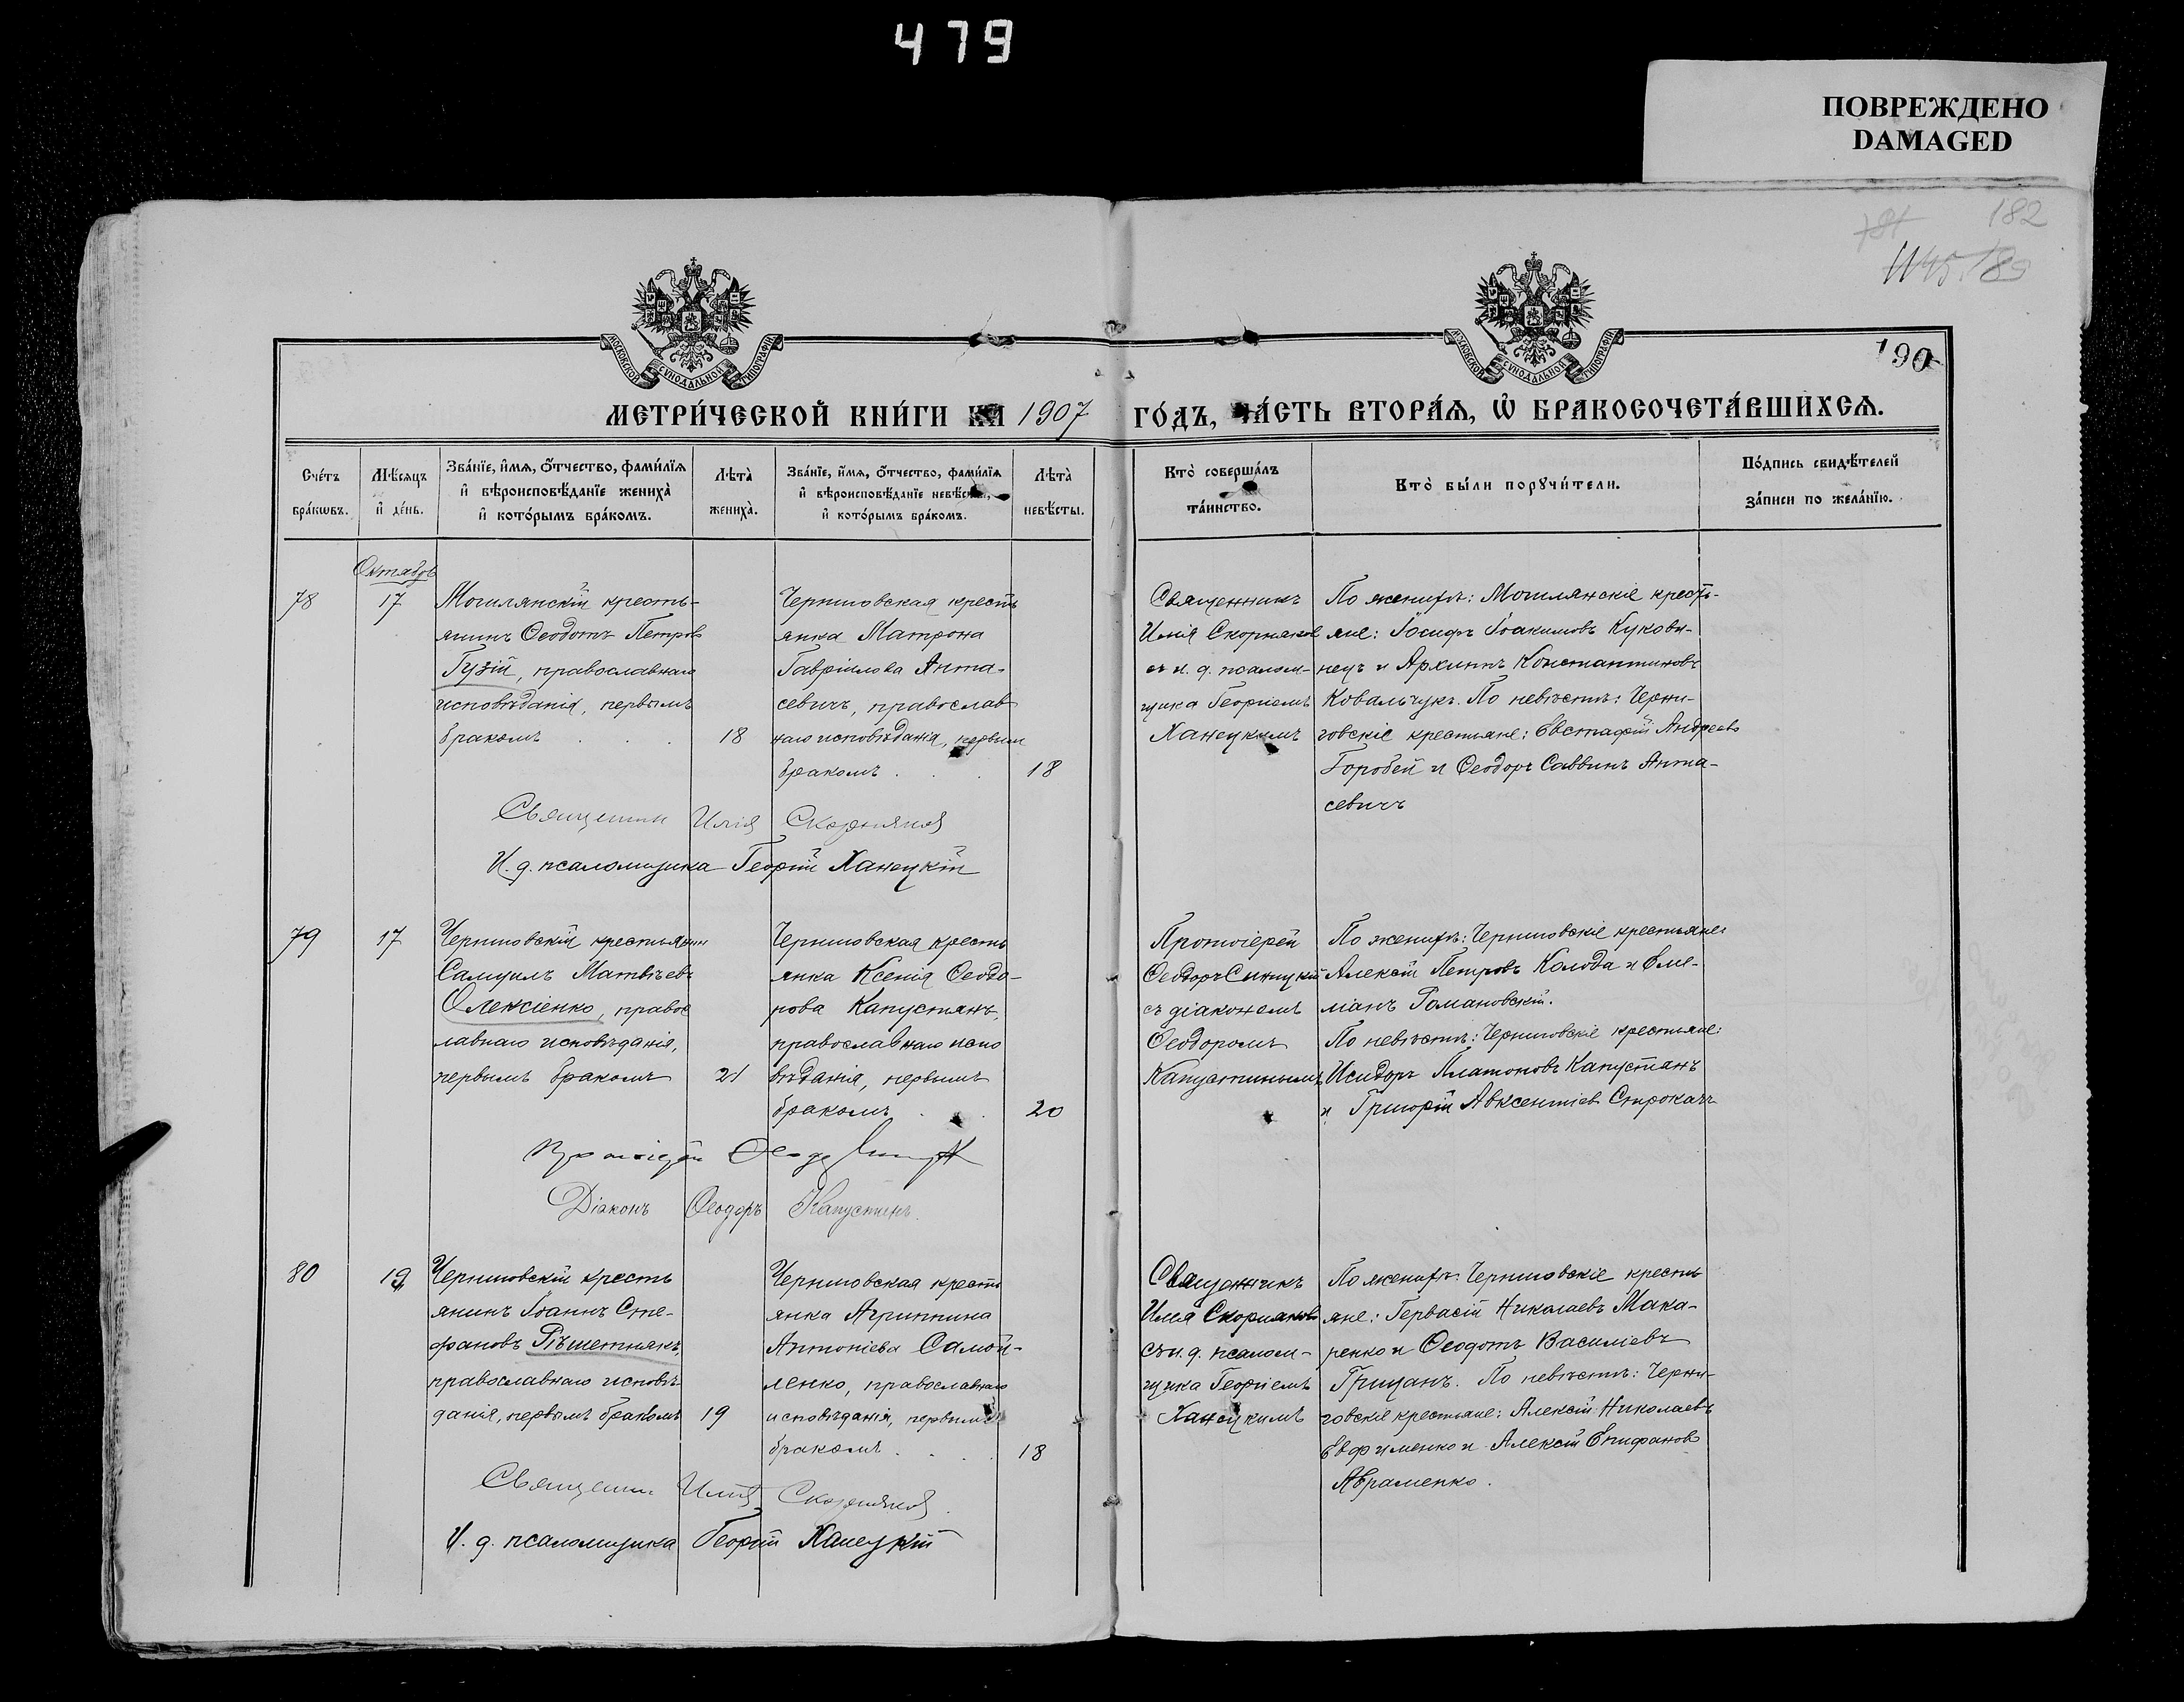 479
ПОВРЕЖДЕНО
DAMAGED
182
190
МЕТРИ́ЧЕСКОЙ КНИ́ГИ НА 1907 ГО́ДЪ, ЧА́СТЬ ВТОРА́Я, Ѡ БРАКОСОЧЕТА́ВШИХСЯ.
МОСКОВСКОЙ СѴНОДАЛЬНОЙ ТИПОГРАФІИ
МОСКОВСКОЙ СѴНОДАЛЬНОЙ ТИПОГРАФІИ
Сче́тъ
бра́кѡвъ.
Мѣ́сяцъ
и҆ де́нь.
Зва́нїе, и҆́мя, ѻ҆́тчество, фами́лїя
и҆ вѣроисповѣ́данїе жениха̀
и҆ кото́рымъ бра́комъ.
Лѣ́та
жениха̀.
Зва́нїе, и҆́мя, ѻ҆́тчество, фами́лїя
и҆ вѣроисповѣ́данїе невѣ́сты,
и҆ кото́рымъ бра́комъ.
Лѣ́та
невѣ́сты.
Кто̀ соверша́лъ
та́инство.
Кто̀ бы́ли порꙋчи́тели.
По́дпись свидѣ́телей
за́писи по жела́нїю.
Октябрь
78
17
Могилянскій кресть-
янинъ Ѳеодотъ Петровъ
Гузій, православнаго
исповѣданія, первымъ
бракомъ
18
Черниговская кресть
янка Матрона
Гавріилова Анта-
севичъ, православ
наго исповѣданія, первым
бракомъ
18
Священникъ
Илія Скорняковъ
съ и. д. псалом-
щика Георгіемъ
Ханецкимъ
По женихѣ: Могилянскіе кресть-
яне: Іосифъ Іоакимовъ Кукови-
нецъ и Архиппъ Константиновъ
Ковальчукъ. По невѣстѣ: Черни-
говскіе крестьяне: Евстафій Андреевъ
Горобей и Ѳеодоръ Саввинъ Анта-
севичъ
Священник Илія Скорняков
И. д. псаломщика Георгій Ханецкій
79
17
Черниговскій крестьянин
Самуилъ Матвѣевъ
Олексіенко, правос
лавнаго исповѣданія,
первымъ бракомъ
21
Черниговская кресть
янка Ксенія Ѳеодо-
рова Капустянъ,
православнаго испо
вѣданія, первымъ
бракомъ
20
Протоіерей
Ѳеодоръ Синицкій
съ діакономъ
Ѳеодоромъ
Капустинымъ
По женихѣ: Черниговскіе крестьяне:
Алексій Петровъ Колода и Еме-
ліанъ Романовскій.
По невѣстѣ: Черниговскіе крестьяне:
Исидоръ Платоновъ Капустянъ
и Григорій Авксентіев Строкачъ
Протоіерей
Діаконъ Ѳеодоръ Капустинъ.
80
19
Черниговскій кресть
янинъ Іоаннъ Сте-
фановъ Рѣшетнякъ,
православнаго исповѣ-
данія, первымъ бракомъ
19
Черниговская кресть
янка Агриппина
Антоніева Самой-
ленко, православнаго
исповѣданія, первымъ
бракомъ
18
Священникъ
Илія Скорняковъ
съ и. д. псалом-
щика Георгіемъ
Ханецкимъ
По женихѣ: Черниговскіе кресть
яне: Гервасій Николаевъ Мака-
ренко и Ѳеодотъ Василіевъ
Грицанъ. По невѣстѣ: Черни-
говскіе крестьяне: Алексій Николаевъ
Евфименко и Алексій Епифановъ
Авраменко.
Священник Илія Скорняков
И. д. псаломщика Георгій Ханецкій